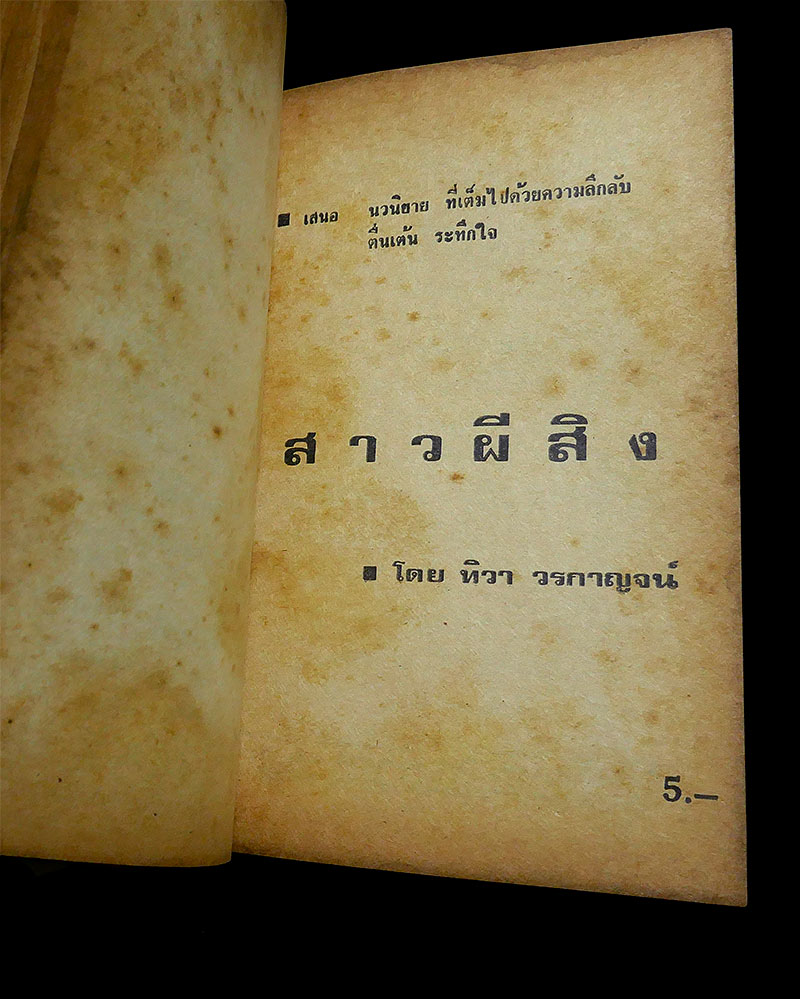 ■ เสนอ นวนิยาย ที่เต็มไปด้วยความลึกลับ
ตื่นเต้น ระทึกใจ
สาวผีสิง
■ โดย ทิวา วรกาญจน์
5.—